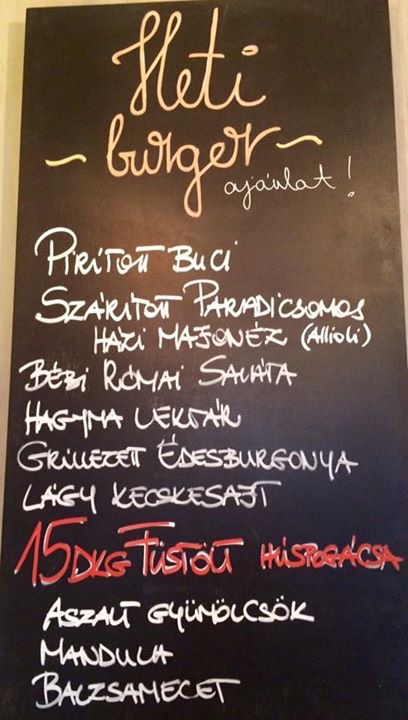 Heti
~ burger ~
ajánlat!
PIRÍTOTT BUCI
SZÁRÍTOTT PARADICSOMOS
HÁZI MAJONÉZ (Allioli)
BÉBI RÓMAI SALÁTA
HAGYMA LEKVÁR
GRILLEZETT ÉDESBURGONYA
LÁGY KECSKESAJT
15DKG FÜSTÖLT HÚSPOGÁCSA
ASZALT GYÜMÖLCSÖK
MANDULA
BALZSAMECET